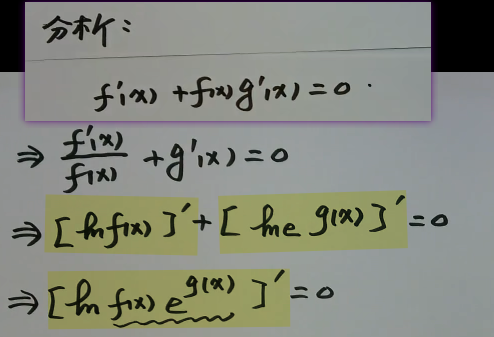 分析:
f'(x) + f(x)g'(x) = 0.
⇒ f'(x)/f(x) + g'(x) = 0
⇒ [ln f(x)]' + [ln e^g(x)]' = 0
⇒ [ln f(x) e^g(x)]' = 0